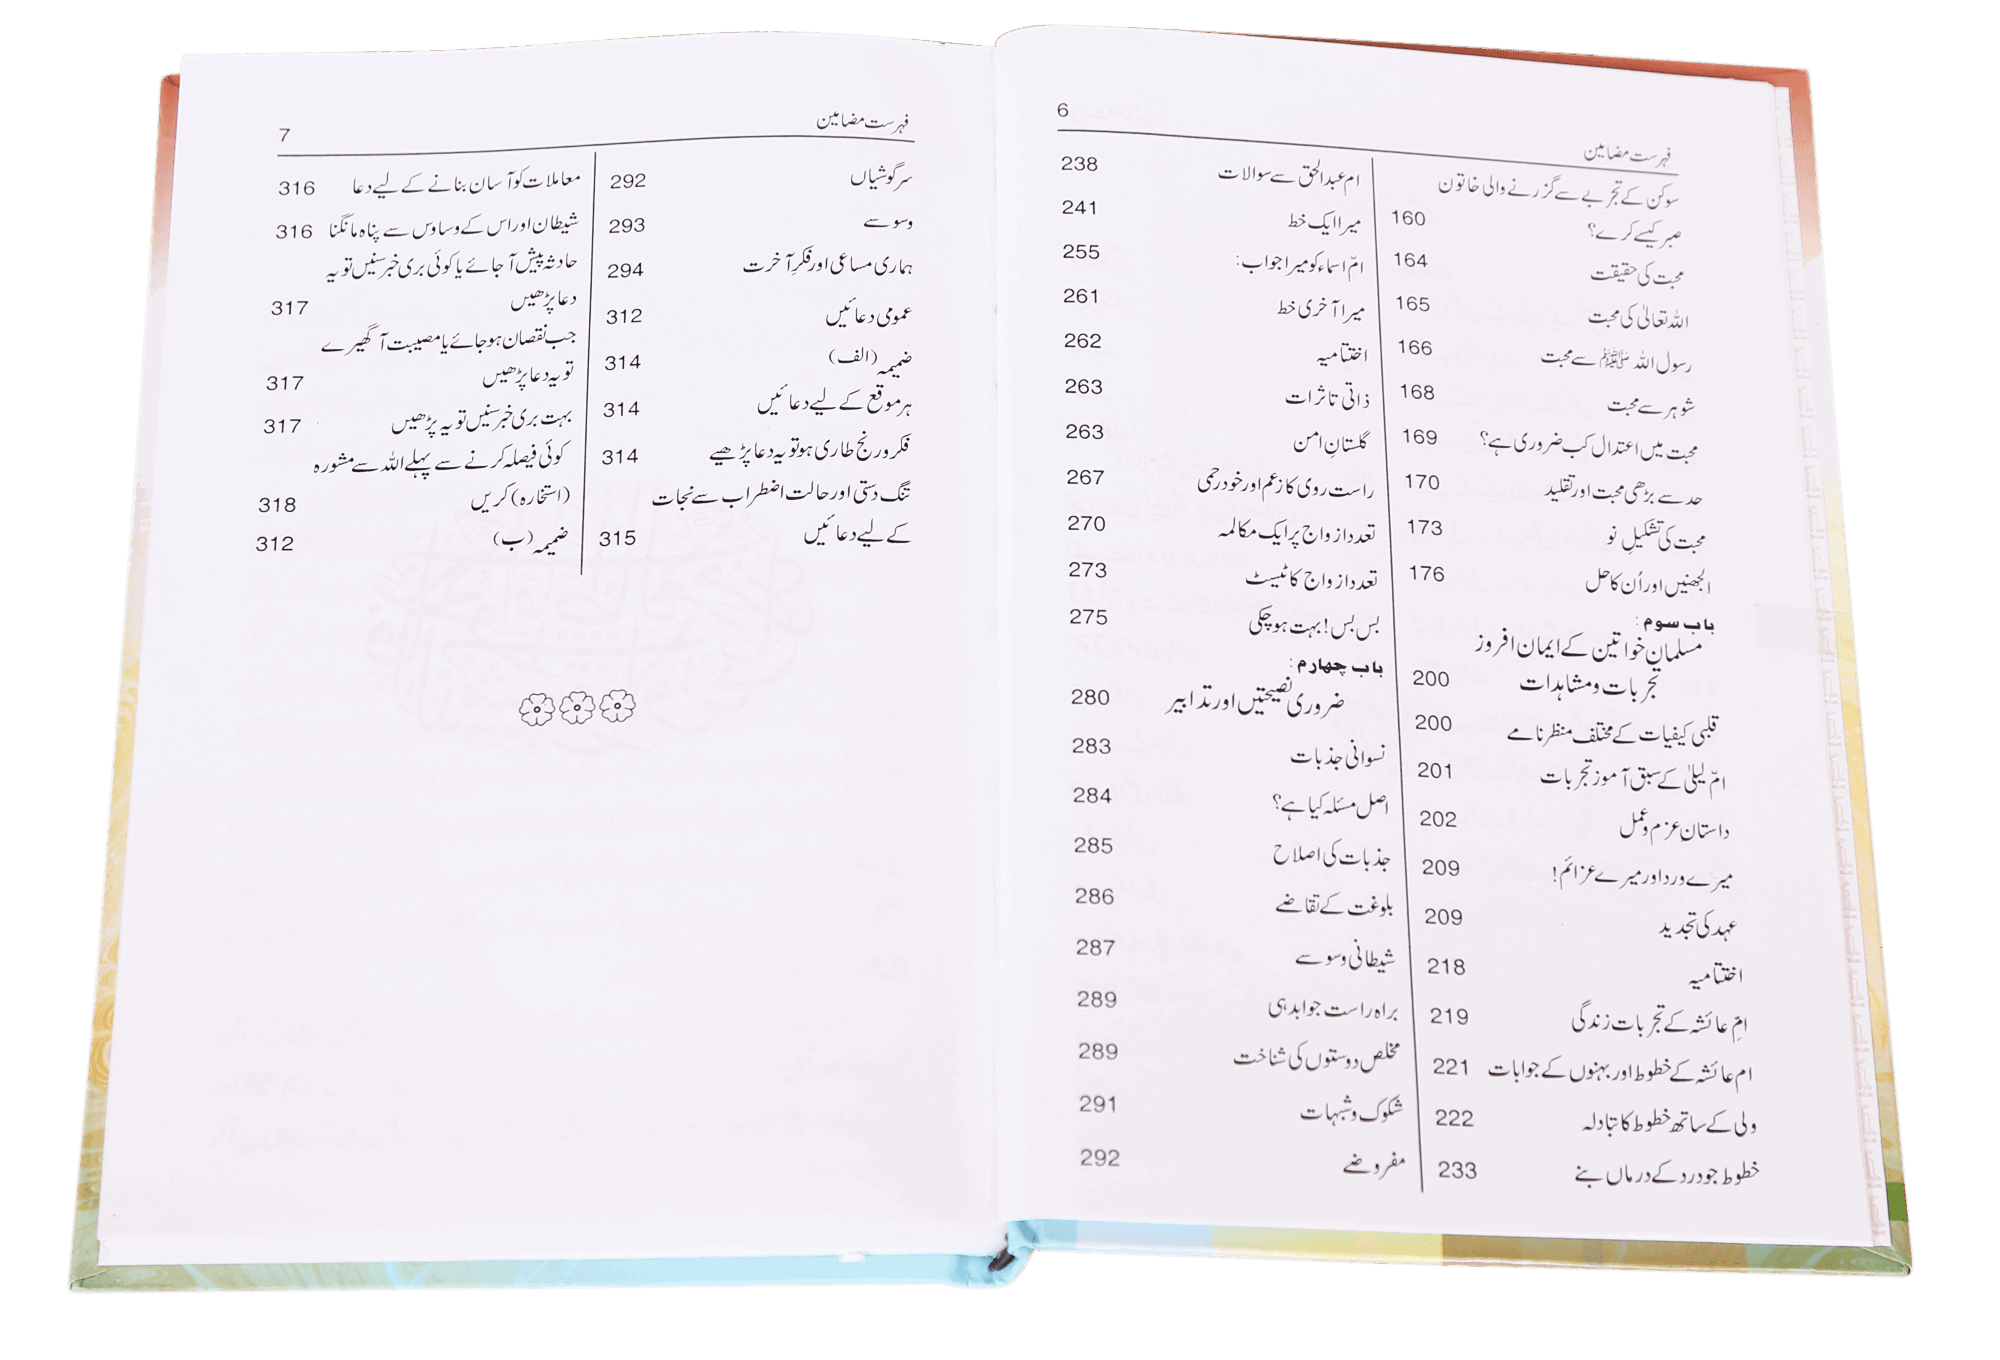 6
فہرست مضامین
سوکن کے تجربے سے گزرنے والی خاتون
صبر کیسے کرے؟ 160
محبت کی حقیقت 164
اللہ تعالیٰ کی محبت 165
رسول اللہ ﷺ سے محبت 166
شوہر سے محبت 168
محبت میں اعتدال کب ضروری ہے؟ 169
حد سے بڑھی محبت اور تقلید 170
محبت کی تشکیلِ نو 173
الجھنیں اور اُن کا حل 176
باب سوم:
مسلمان خواتین کے ایمان افروز
تجربات و مشاہدات 200
قلبی کیفیات کے مختلف منظر نامے 200
امّ لیلیٰ کے سبق آموز تجربات 201
داستانِ عزم و عمل 202
میرے ورد اور میرے عزائم! 209
عہد کی تجدید 209
اختتامیہ 218
امّ عائشہ کے تجربات زندگی 219
ام عائشہ کے خطوط اور بہنوں کے جوابات 221
ولی کے ساتھ خطوط کا تبادلہ 222
خطوط جو درد کے درماں بنے 233
ام عبدالحق سے سوالات 238
میرا ایک خط 241
امّ اسماء کو میرا جواب: 255
میرا آخری خط 261
اختتامیہ 262
ذاتی تاثرات 263
گلستانِ امن 263
راست روی کا زعم اور خود رحمی 267
تعدد ازواج پر ایک مکالمہ 270
تعدد ازواج کا ٹیسٹ 273
بس بس! بہت ہو چکی 275
باب چهارم:
ضروری نصیحتیں اور تدابیر 280
نسوانی جذبات 283
اصل مسئلہ کیا ہے؟ 284
جذبات کی اصلاح 285
بلوغت کے تقاضے 286
شیطانی وسوسے 287
براہ راست جوابدہی 289
مخلص دوستوں کی شناخت 289
شکوک و شبہات 291
مفروضے 292
فہرست مضامین
7
سرگوشیاں 292
وسوسے 293
ہماری مساعی اور فکرِ آخرت 294
عمومی دعائیں 312
ضمیمہ (الف) 314
ہر موقع کے لیے دعائیں 314
فکر و رنج طاری ہو تو یہ دعا پڑھیے 314
تنگ دستی اور حالت اضطراب سے نجات
کے لیے دعائیں 315
معاملات کو آسان بنانے کے لیے دعا 316
شیطان اور اس کے وساوس سے پناہ مانگنا 316
حادثہ پیش آجائے یا کوئی بری خبر سنیں تو یہ
دعا پڑھیں 317
جب نقصان ہو جائے یا مصیبت آ گھیرے
تو یہ دعا پڑھیں 317
بہت بری خبر سنیں تو یہ پڑھیں 317
کوئی فیصلہ کرنے سے پہلے اللہ سے مشورہ
(استخارہ) کریں 318
ضمیمہ (ب) 312